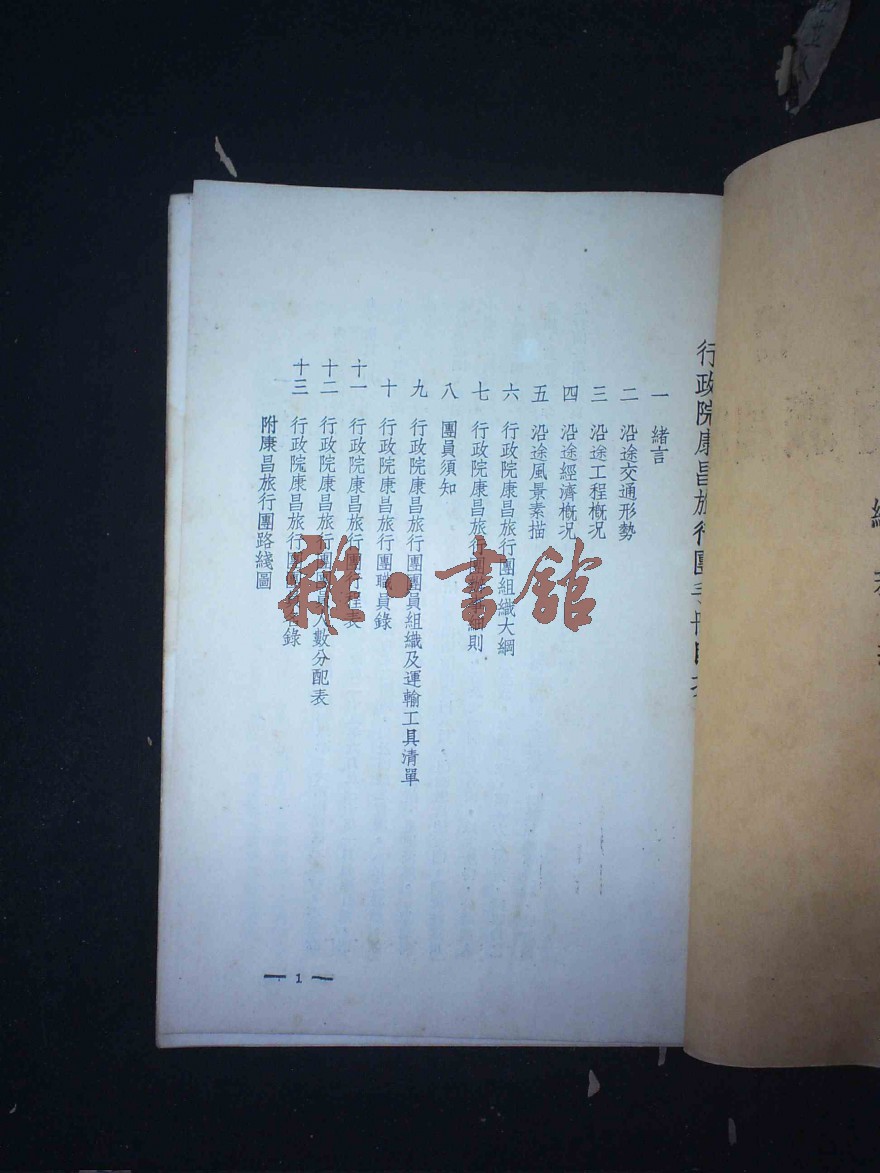 行政院康昌旅行團手冊目次
一 緒言
二 沿途交通形勢
三 沿途工程概況
四 沿途經濟概况
五 沿途風景素描
六 行政院康昌旅行團組織大綱
七 行政院康昌旅行團細則
八 團員須知
九 行政院康昌旅行團團員組織及運輸工具清單
十 行政院康昌旅行團職員錄
十一 行政院康昌旅行團行程表
十二 行政院康昌旅行團團員人數分配表
十三 行政院康昌旅行團團名錄
附康昌旅行團路綫圖
1
雜·書館